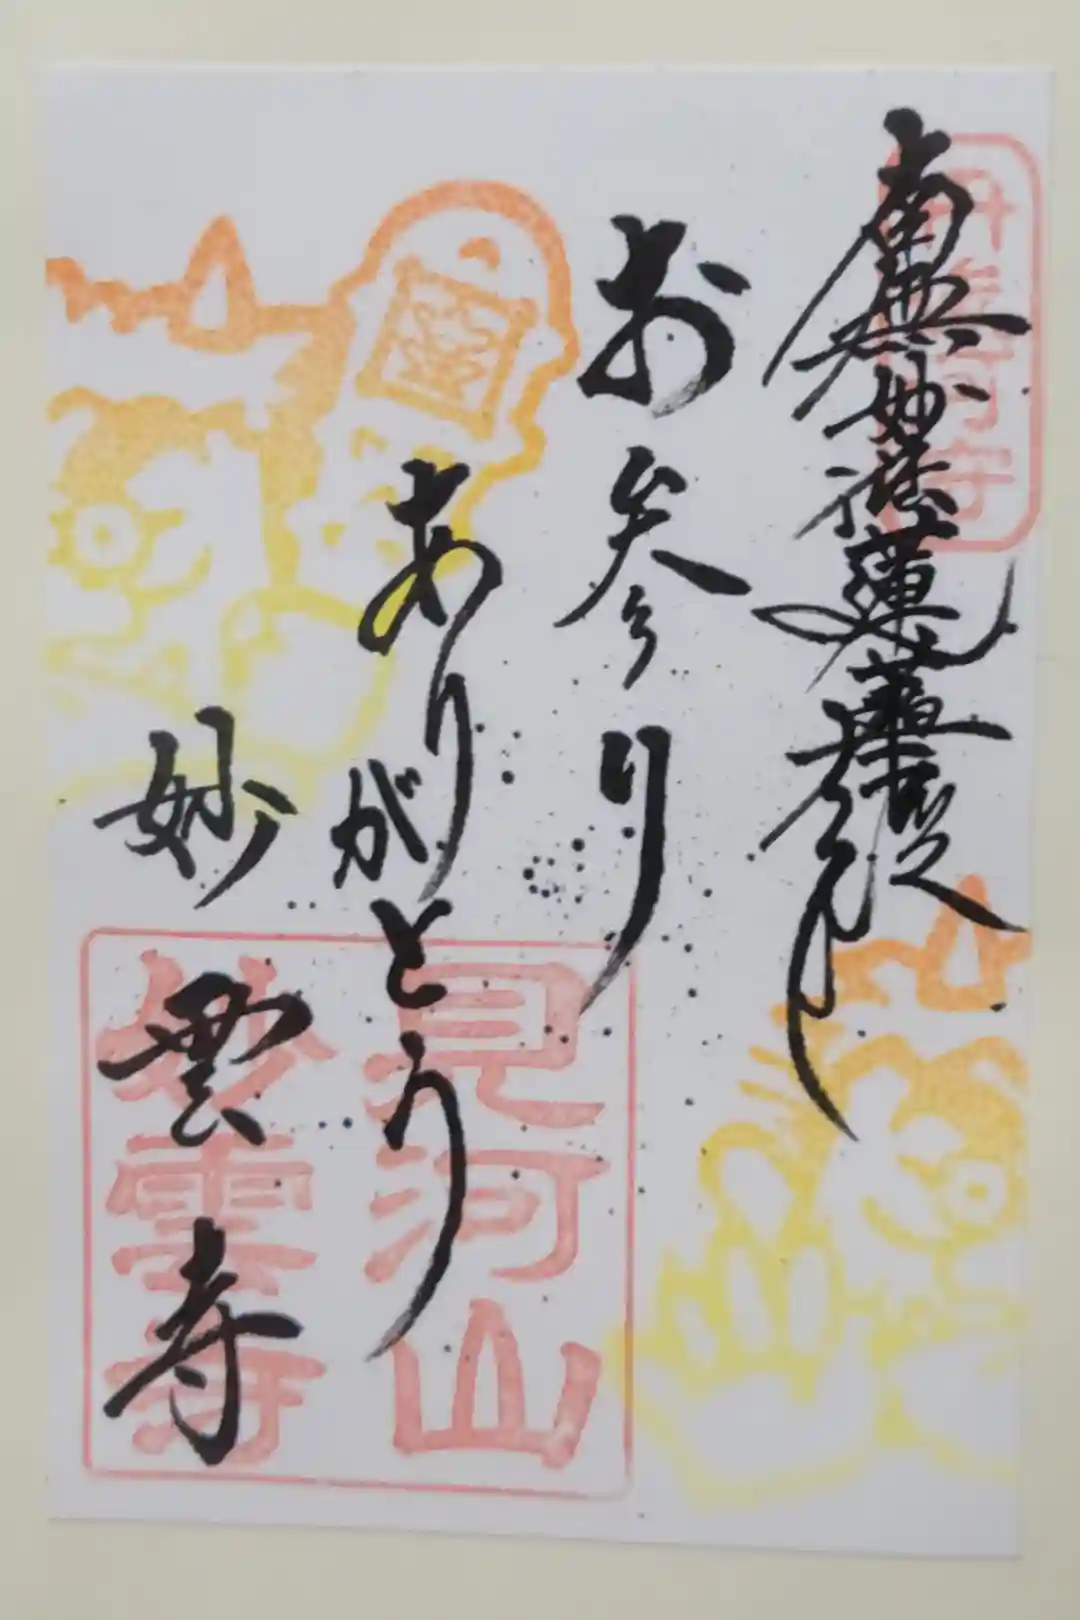 南無妙法蓮華経
お参り
ありがとう
妙雲寺
見河山
妙雲寺